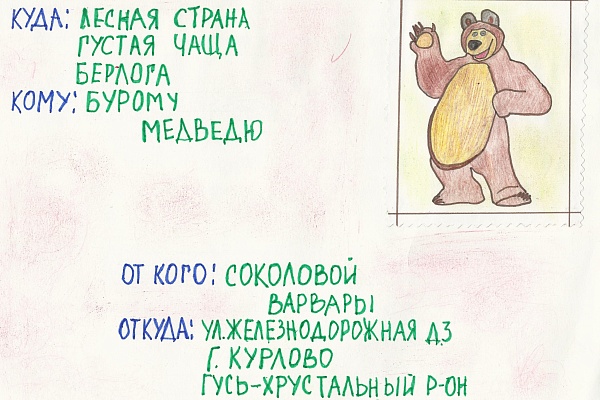 КУДА: ЛЕСНАЯ СТРАНА
ГУСТАЯ ЧАЩА
БЕРЛОГА
КОМУ: БУРОМУ
МЕДВЕДЮ
ОТ КОГО: СОКОЛОВОЙ
ВАРВАРЫ
ОТКУДА: УЛ.ЖЕЛЕЗНОДОРОЖНАЯ Д.3
Г. КУРЛОВО
ГУСЬ-ХРУСТАЛЬНЫЙ Р-ОН